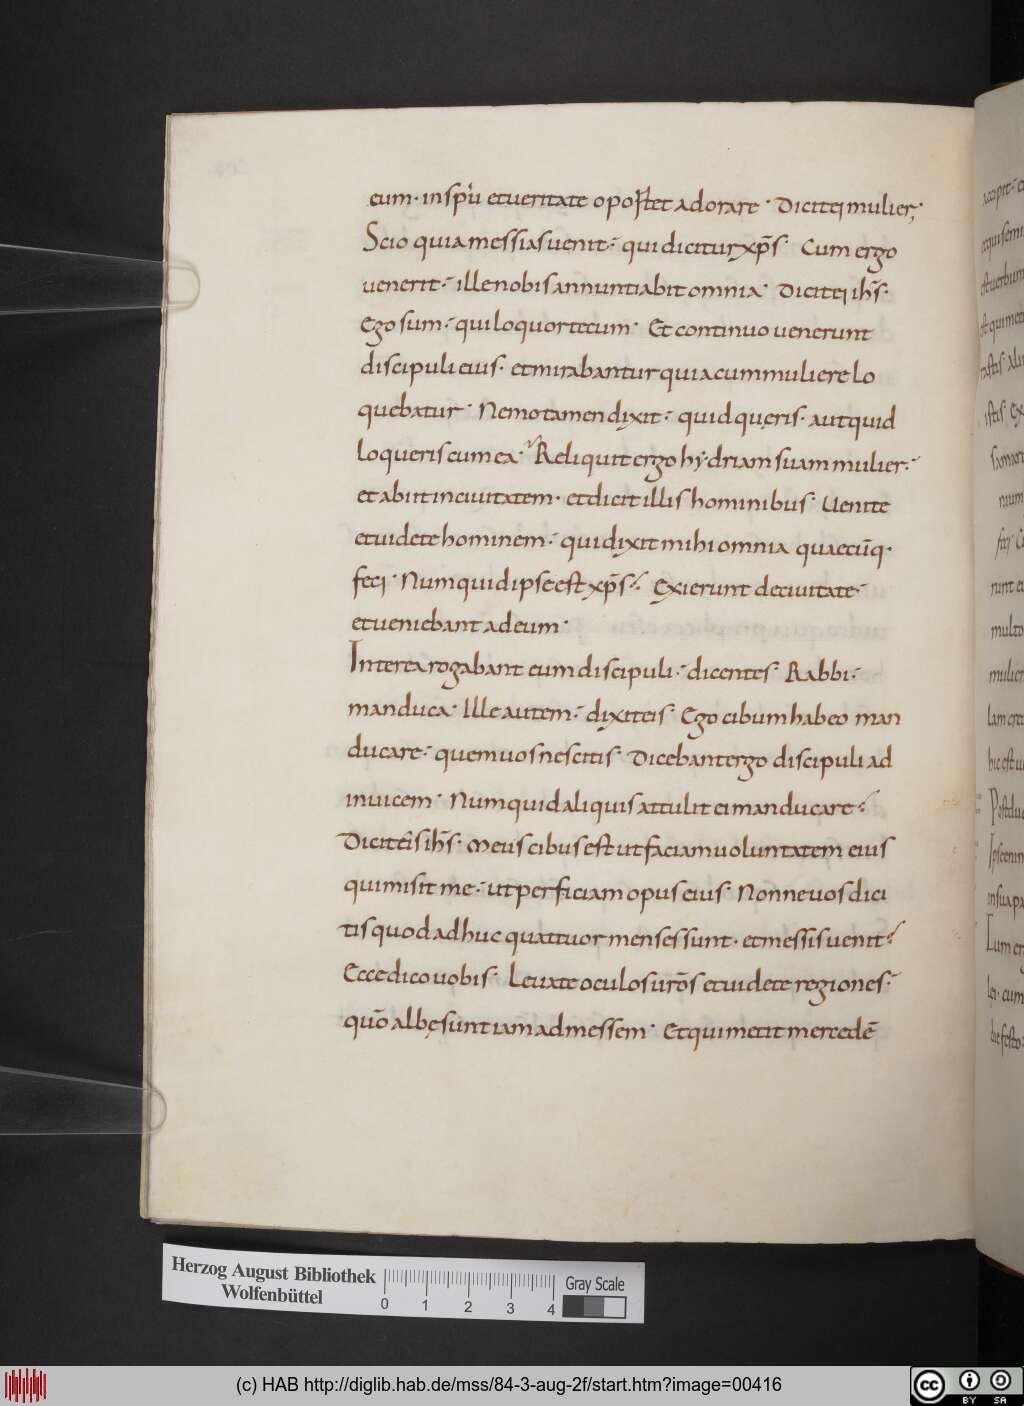 eum· in sp̄u et ueritate oportet adorare · Dicit ei mulier;
Scio quia messias uenit· qui dicitur xp̄s· Cum ergo
uenerit· ille nobis annuntiabit omnia· Dicit ei ih̄s·
Ego sum· qui loquor tecum· Et continuo uenerunt
discipuli eius· et mirabantur quia cum muliere lo
quebatur· Nemo tamen dixit· quid quęris· aut quid
loqueris cum ea· Reliquit ergo hydriam suam mulier·
et abiit in ciuitatem· et dicit illis hominibus· Uenite
et uidete hominem· qui dixit mihi omnia quaecūq·
feci· Numquid ipse est xp̄s· Exierunt de ciuitate·
et ueniebant ad eum·
Interea rogabant eum discipuli· dicentes· Rabbi·
manduca· Ille autem· dixit eis· Ego cibum habeo man
ducare· quem uos nescitis· Dicebant ergo discipuli ad
inuicem· Numquid aliquis attulit ei manducare·
Dicit eis ih̄s· Meus cibus est ut faciam uoluntatem eius
qui misit me· ut perficiam opus eius· Nonne uos dici
tis quod adhuc quattuor menses sunt· et messis uenit·
Ecce dico uobis· Leuate oculos urōs et uidete regiones·
quō albę sunt iam ad messem· Et qui metit mercedē
Herzog August Bibliothek
Wolfenbüttel
0 1 2 3 4
Gray Scale
(c) HAB http://diglib.hab.de/mss/84-3-aug-2f/start.htm?image=00416
cc BY SA